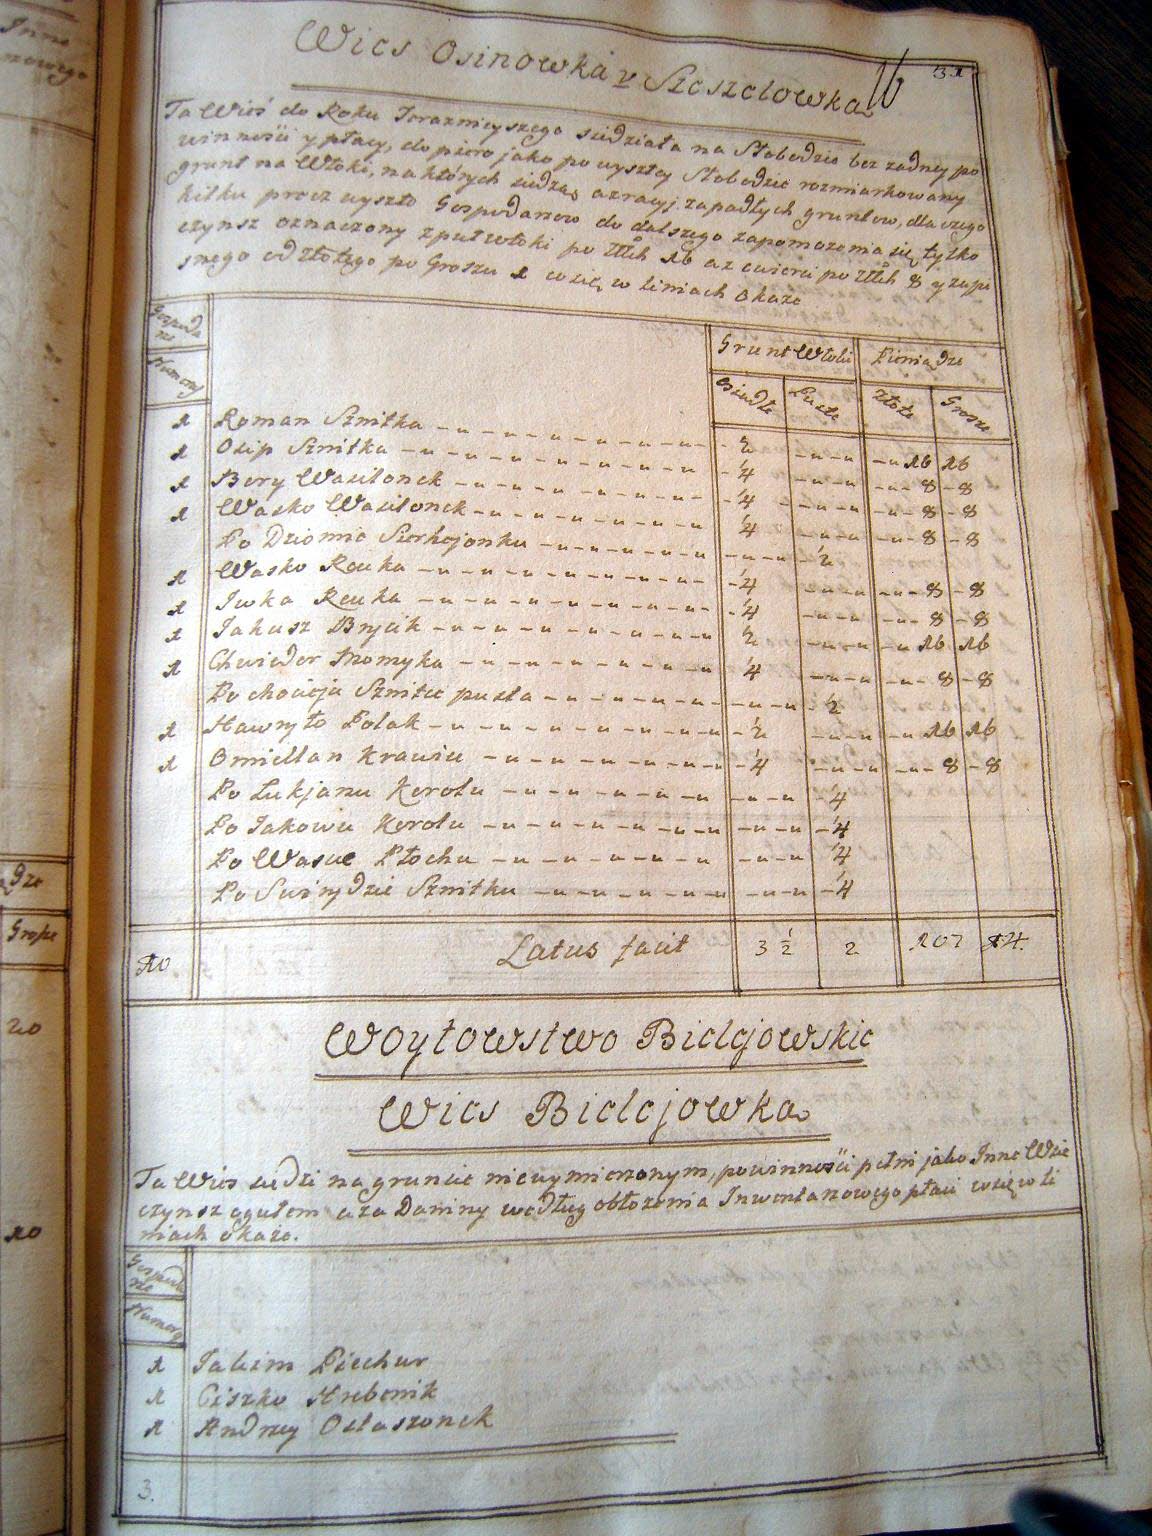 Wies Osinowka y Szeszelowka 16
31
Ta Wieś do Roku Terazniejszego siedziała na Słobodzie bez zadney po
winności y płacy, dopiero jako po wyszłey Słobodzie rozmiarkowany
grunt na Włoki, na których siedzą, a racyj. zapadłych gruntow, dla czego
kilku precz wyszło Gospodarzow do dalszego zapomozenia się tylko
czynsz oznaczony z puł włoki po złłch 16 a z cwierci po złłch 8 y zapi
snego od złotego po Groszu 1 co się w Liniach okaze
Gospoda
rze
Numery
Grunt Włoki
Pieniądze
Osiadłe
Puste
Złote
Grosze
1 Roman Sznitka ½ 16 16
1 Osip Sznitka ¼ 8 8
1 Bery Wasilonek ¼ 8 8
1 Wasko Wasilonek ¼ 8 8
Po Dziomie Sierhejonku ½
1 Wasko Reuka ¼ 8 8
1 Iwka Reuka ¼ 8 8
1 Jakusz Brycik ½ 16 16
1 Chwiedor Thomyka ¼ 8 8
Po choiceja Sznitce pusta ½
1 Hawryło Polak ½ 16 16
1 Omiellan Krawiec ¼ 8 8
Po Lukjanu Korolu ¼
Po Jakowu Korolu ¼
Po Wasce Płochu ¼
Po Swirydzie Sznitku ¼
10 Latus facit 3 ½ 2 107 14
Woytowstwo Bielejowskie
Wies Bielejowka
Ta Wies siedzi na gruncie niewymierzonym, powinności pełni jako Inne Wsie
czynsz ogułem a za Daniny według obłozenia Inwentarzowego płaci co się w li
niach okaze.
Gospoda
rze
Numery
1 Jakim Piechur
1 Ciszko Hrebenik
1 Andrzey Ostaszonek
3.
Inne
rzowego
dze
Grosze
20
10